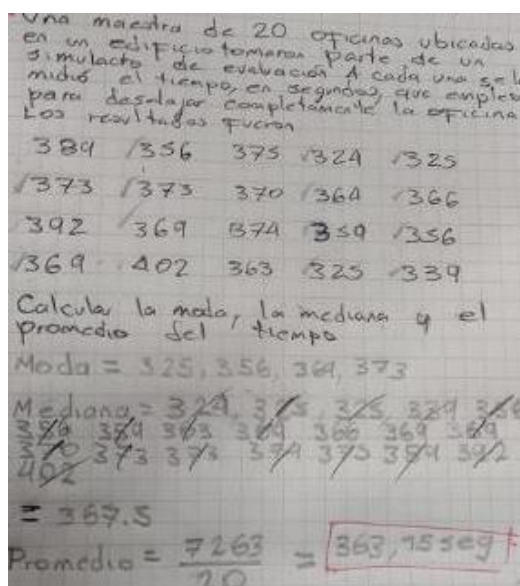 Una maestra de 20 oficinas ubicadas
en un edificio tomaron parte de un
simulacro de evaluación A cada una se l
midió el tiempo, en segundos, que emplea
para desalojar completamente la oficina
Los resultados fueron
389 356 375 324 325
373 373 370 364 366
392 369 374 359 356
369 402 363 325 339
Calcular la moda, la mediana y el
promedio del tiempo
Moda = 325, 356, 369, 373
Mediana = 324, 325, 325, 339 356
356 359 363 364 366 369 369
370 373 373 374 375 389 392
402
= 367.5
Promedio = 7263 = 363,15 seg
20